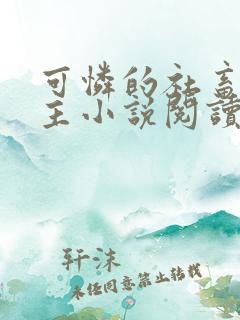 可憐的社畜
主小說閱讀
轩沫
未经同意禁止转载